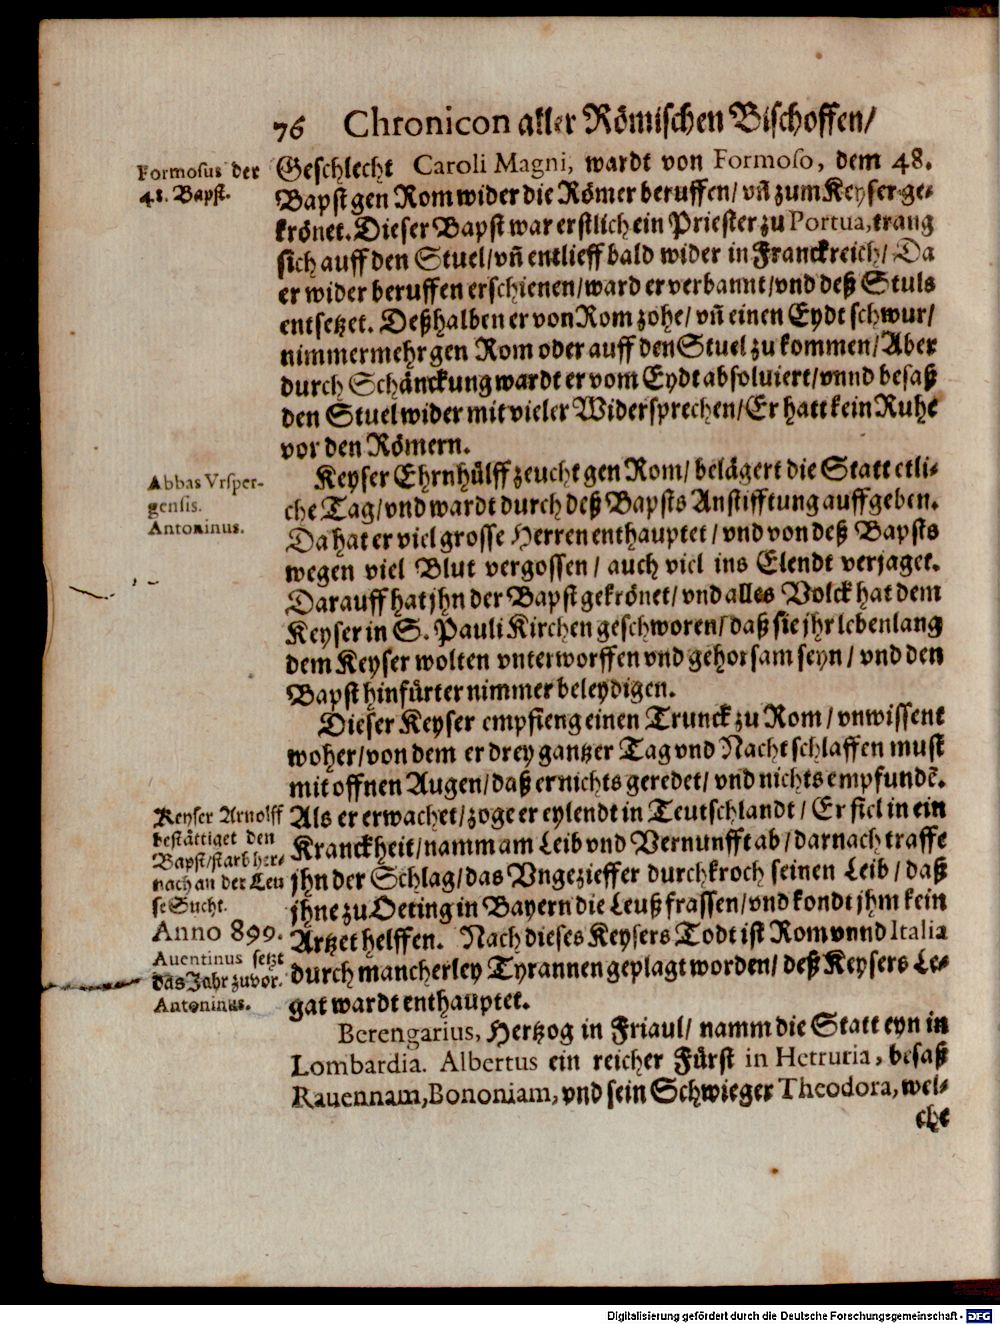 76 Chronicon aller Römischen Bischoffen/
Formosus der
48. Bapst.
Geschlecht Caroli Magni, wardt von Formoso, dem 48.
Bapst gen Rom wider die Römer beruffen/ vñ zum Keyser ge-
krönet. Dieser Bapst war erstlich ein Priester zu Portua, trang
sich auff den Stuel/ vñ entlieff bald wider in Franckreich/ Da
er wider beruffen erschienen/ ward er verbannt/ vnd deß Stuls
entsetzet. Deßhalben er von Rom zohe/ vñ einen Eydt schwur/
nimmermehr gen Rom oder auff den Stuel zu kommen/ Aber
durch Schänckung wardt er vom Eydt absoluiert/ vnnd besaß
den Stuel wider mit vieler Widersprechen/ Er hatt kein Ruhe
vor den Römern.
Abbas Vrsper-
gensis.
Antoninus.
Keyser Ehrnhülff zeucht gen Rom/ belägert die Statt etli-
che Tag/ vnd wardt durch deß Bapsts Anstifftung auffgeben.
Da hat er viel grosse Herren enthauptet/ vnd von deß Bapsts
wegen viel Blut vergossen/ auch viel ins Elendt verjaget.
Darauff hat jhn der Bapst gekrönet/ vnd alles Volck hat dem
Keyser in S. Pauli Kirchen geschworen/ daß sie jhr lebenlang
dem Keyser wolten vnterworffen vnd gehorsam seyn/ vnd den
Bapst hinfürter nimmer beleydigen.
Dieser Keyser empfieng einen Trunck zu Rom/ vnwissent
woher/ von dem er drey gantzer Tag vnd Nacht schlaffen must
mit offnen Augen/ daß er nichts geredet/ vnd nichts empfundē.
Als er erwachet/ zoge er eylendt in Teutschlandt/ Er fiel in ein
Kranckheit/ namm am Leib vnd Vernunfft ab/ darnach traffe
jhn der Schlag/ das Vngezieffer durchkroch seinen Leib/ daß
jhne zu Oeting in Bayern die Leuß frassen/ vnd kondt jhm kein
Ärtzet helffen. Nach dieses Keysers Todt ist Rom vnnd Italia
durch mancherley Tyrannen geplagt worden/ deß Keysers Le-
gat wardt enthauptet.
Keyser Arnolff
bestättiget den
Bapst/ starb her-
nach an der Leu
se Sucht.
Anno 899.
Auentinus setzt
das Jahr zuvor.
Antoninus.
Berengarius, Hertzog in Friaul/ namm die Statt eyn in
Lombardia. Albertus ein reicher Fürst in Hetruria, besaß
Rauennam, Bononiam, vnd sein Schwieger Theodora, wel-
che
Digitalisierung gefördert durch die Deutsche Forschungsgemeinschaft - DFG